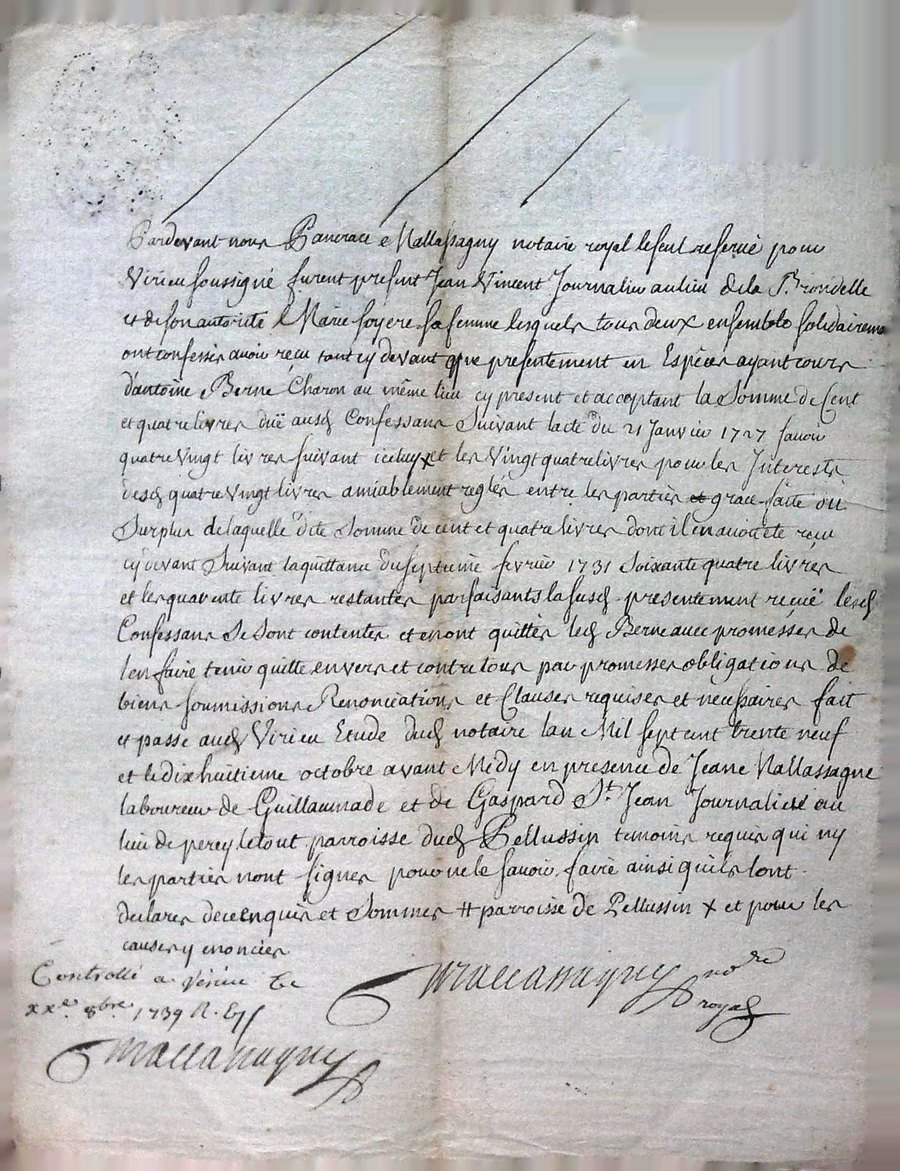 Pardevant nous Pancrace Mallassagny notaire royal le seul reservé pour
Virieu soussigné furent present Jean Vincent Journalier au lieu de la Briondelle
et de son autorité Marie foyere sa femme lesquels tous deux ensemble solidairem
ont confessés avoir recu tant cy devant que presentement en Especes ayant cours
d'antoine Berne Charon au même lieu cy present et acceptant la Somme de Cent
et quatre livres duë ausd Confessans Suivant lacte du 21 Janvier 1727 savoir
quatre vingt livres suivant iceluy x et les vingt quatre livres pour les Interests
desd quatre vingt livres amiablement reglés entre les parties et grace faite du
Surplus de laquelle dite Somme de cent et quatre livres dont il en avoit été recu
cy devant Suivant la quittance du septieme fevrier 1731 Soixante quatre livres
et les quarente livres restantes parfaisants la susd presentement recuë lesd
Confessans Se Sont contentés et en ont quittés led Berne avec promesses de
l'en faire tenir quitte envers et contre tous par promesses obligations de
biens soumissions Renonciations et Clauses requises et necessaires fait
et passé aud Virieu Etude dud notaire lan Mil sept cent trente neuf
et le dix huitieme octobre avant Midy en presence de Jeane Mallassagne
laboureur de Guillaumade et de Gaspard St. Jean Journalier au
lieu de percy le tout parroisse dud Pellussin temoins requis qui ny
les parties nont signés pour ne le savoir faire ainsi quils lont
declarés de ce enquis et Sommés # parroisse de Pellussin x et pour les
causes y enoncées
Controllé a Virieu le
xxe. 8bre. 1739 R.
Mallassagny nore
royal
Mallassagny